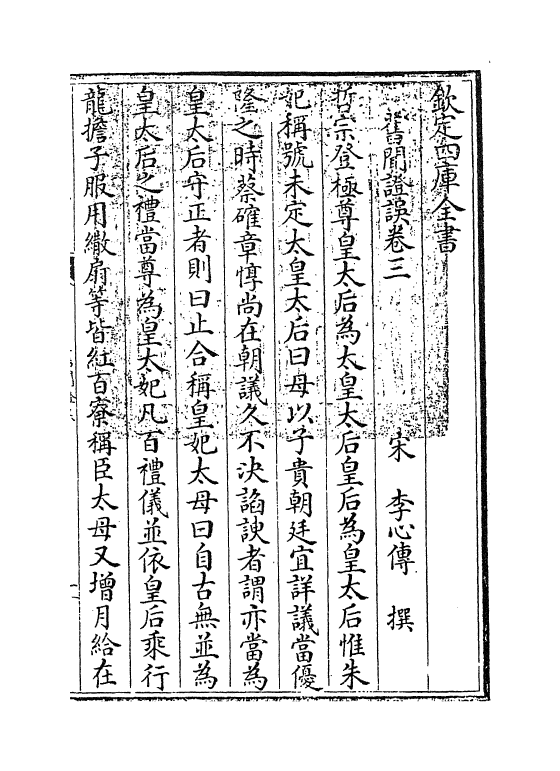 欽定四庫全書
舊聞證誤卷三
宋 李心傳 撰
哲宗登極尊皇太后為太皇太后皇后為皇太后惟朱
妃稱號未定太皇太后曰母以子貴朝廷宜詳議當優
隆之時蔡確章惇尚在朝議久不決諂諛者謂亦當為
皇太后守正者則曰止合稱皇妃太母曰自古無並為
皇太后之禮當尊為皇太妃凡百禮儀並依皇后乘行
龍擔子服用繖扇等皆紅百寮稱臣太母又增月給在